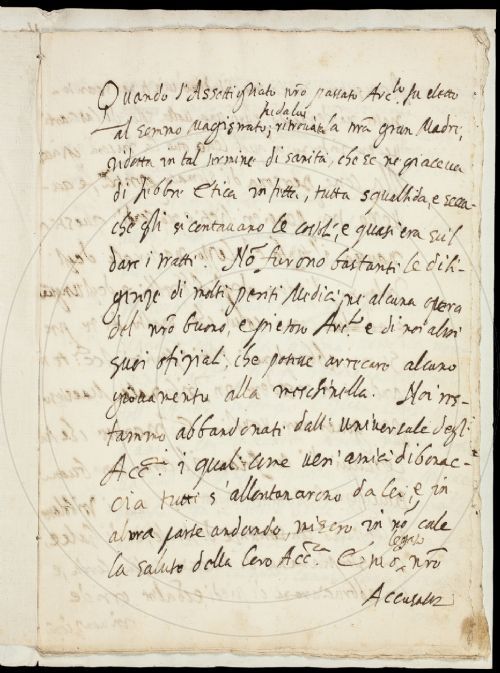 Quando l'Assottigliato nro passato Arc.lo fu eletto
hidalui
al sommo Magistrato, ritrovata la nra gran Madre,
ridotta in tal termine di sanità, che se ne giaceva
di febbre Etica infetta, tutta squallida, e secca
che gli si contavano le costole, e quasi era sul
dare i tratti. Nò furono bastanti le dili-
genze di molti periti Medici, ne alcuna opera
del nro buono, e pietoso Arc.lo e di noi altri
suoi ofiziali, che potesse arrecare alcuno
giovamento alla meschinella. Noi res-
tammo abbandonati dall'universale degli
Acc.ci i quali come veri amici di bonac-
cia tutti s'allontanarono da lei, e, in
altra parte andando, misero in nò cale
la salute della loro Acc.ca E nro
legato
Accusator